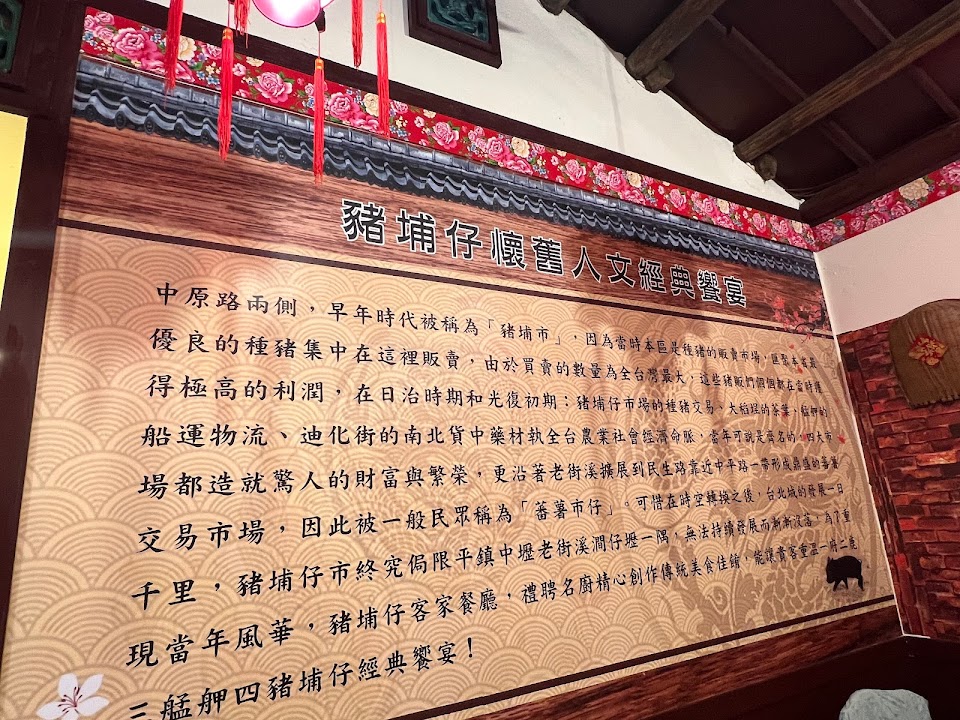 豬埔仔懷舊人文經典饗宴
中原路兩側，早年時代被稱為「豬埔市」，因為當時本區是種豬的販賣市場，匯聚本省最
優良的種豬集中在這裡販賣，由於買賣的數量為全台灣最大，這些豬販們個個都在當時獲
得極高的利潤，在日治時期和光復初期：豬埔仔市場的種豬交易、大稻埕的茶葉、艋舺的
船運物流、迪化街的南北貨中藥材執全台農業社會經濟命脈，當年可說是齊名的，四大市
場都造就驚人的財富與繁榮，更沿著老街溪擴展到民生路靠近中平路一帶形成鼎盛的蕃薯
交易市場，因此被一般民眾稱為「蕃薯市仔」。可惜在時空轉換之後，台北城的發展一日
千里，豬埔仔市終究侷限平鎮中壢老街溪澗仔壢一隅，無法持續發展而漸漸沒落，為了重
現當年風華，豬埔仔客家餐廳，禮聘名廚精心創作傳統美食佳餚，能讓貴客重溫一府二鹿
三艋舺四豬埔仔經典饗宴！